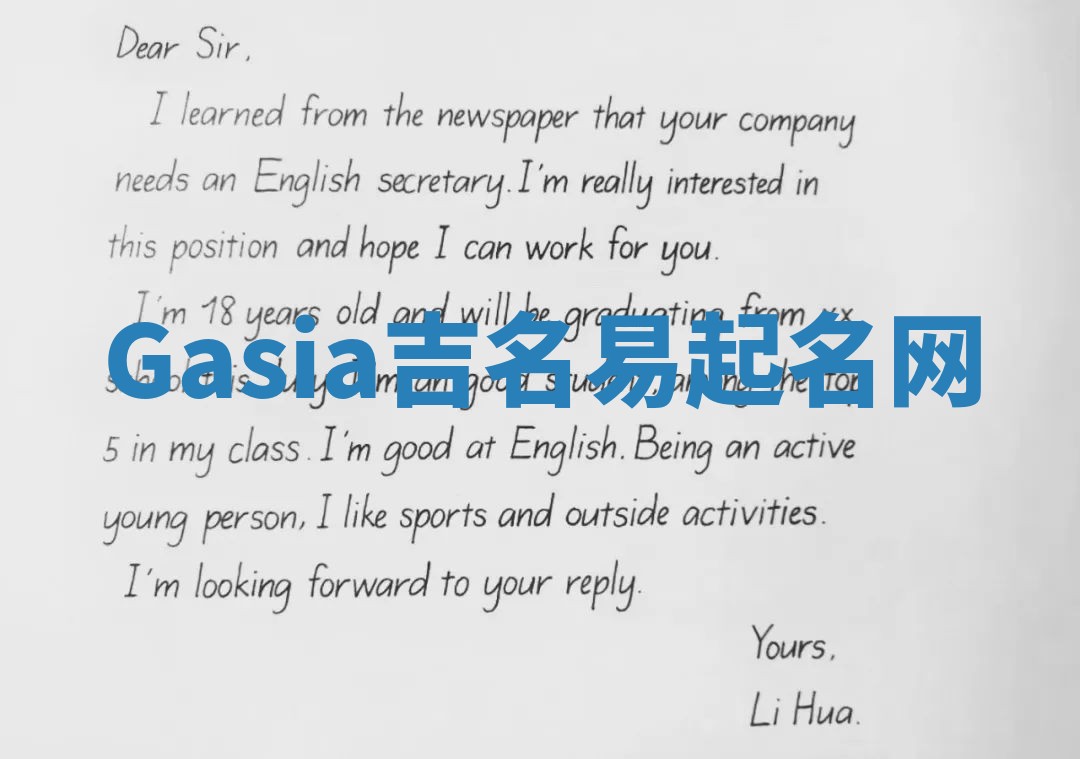 Dear Sir,
I learned from the newspaper that your company
needs an English secretary. I'm really interested in
this position and hope I can work for you.
I'm 18 years old and will be graduating from xx
Gasia吉名易起名网
5 in my class. I'm good at English. Being an active
young person, I like sports and outside activities.
I'm looking forward to your reply.
Yours,
Li Hua.